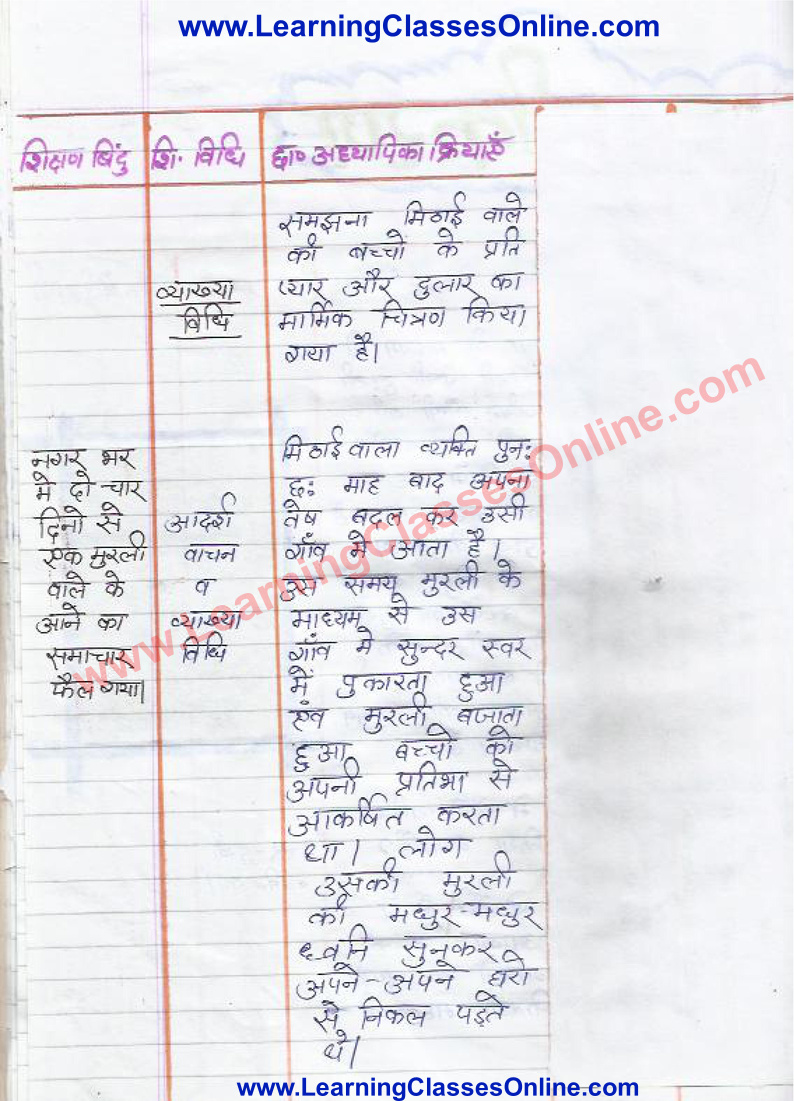 www.LearningClassesOnline.com
शिक्षण बिंदु शि. विधि छा० अध्यापिका क्रियाएँ
समझना मिठाई वाले
की बच्चो के प्रति
प्यार और दुलार का
मार्मिक चित्रण किया
गया है।
व्याख्या
विधि
नगर भर
मे दो-चार
दिनो से
एक मुरली
वाले के
आने का
समाचार
फैल गया।
आदर्श
वाचन
व
व्याख्या
विधि
मिठाई वाला व्यक्ति पुन:
छ: माह बाद अपना
वेष बदल कर उसी
गाँव मे आता है।
उस समय मुरली के
माध्यम से उस
गाँव मे सुन्दर स्वर
में पुकारता हुआ
एंव मुरली बजाता
हुआ बच्चो को
अपनी प्रतिभा से
आकर्षित करता
था। लोग
उसकी मुरली
की मधुर-मधुर
ध्वनि सुनकर
अपने-अपने घरो
से निकल पड़ते
थे।
www.LearningClassesOnline.com
www.LearningClassesOnline.com